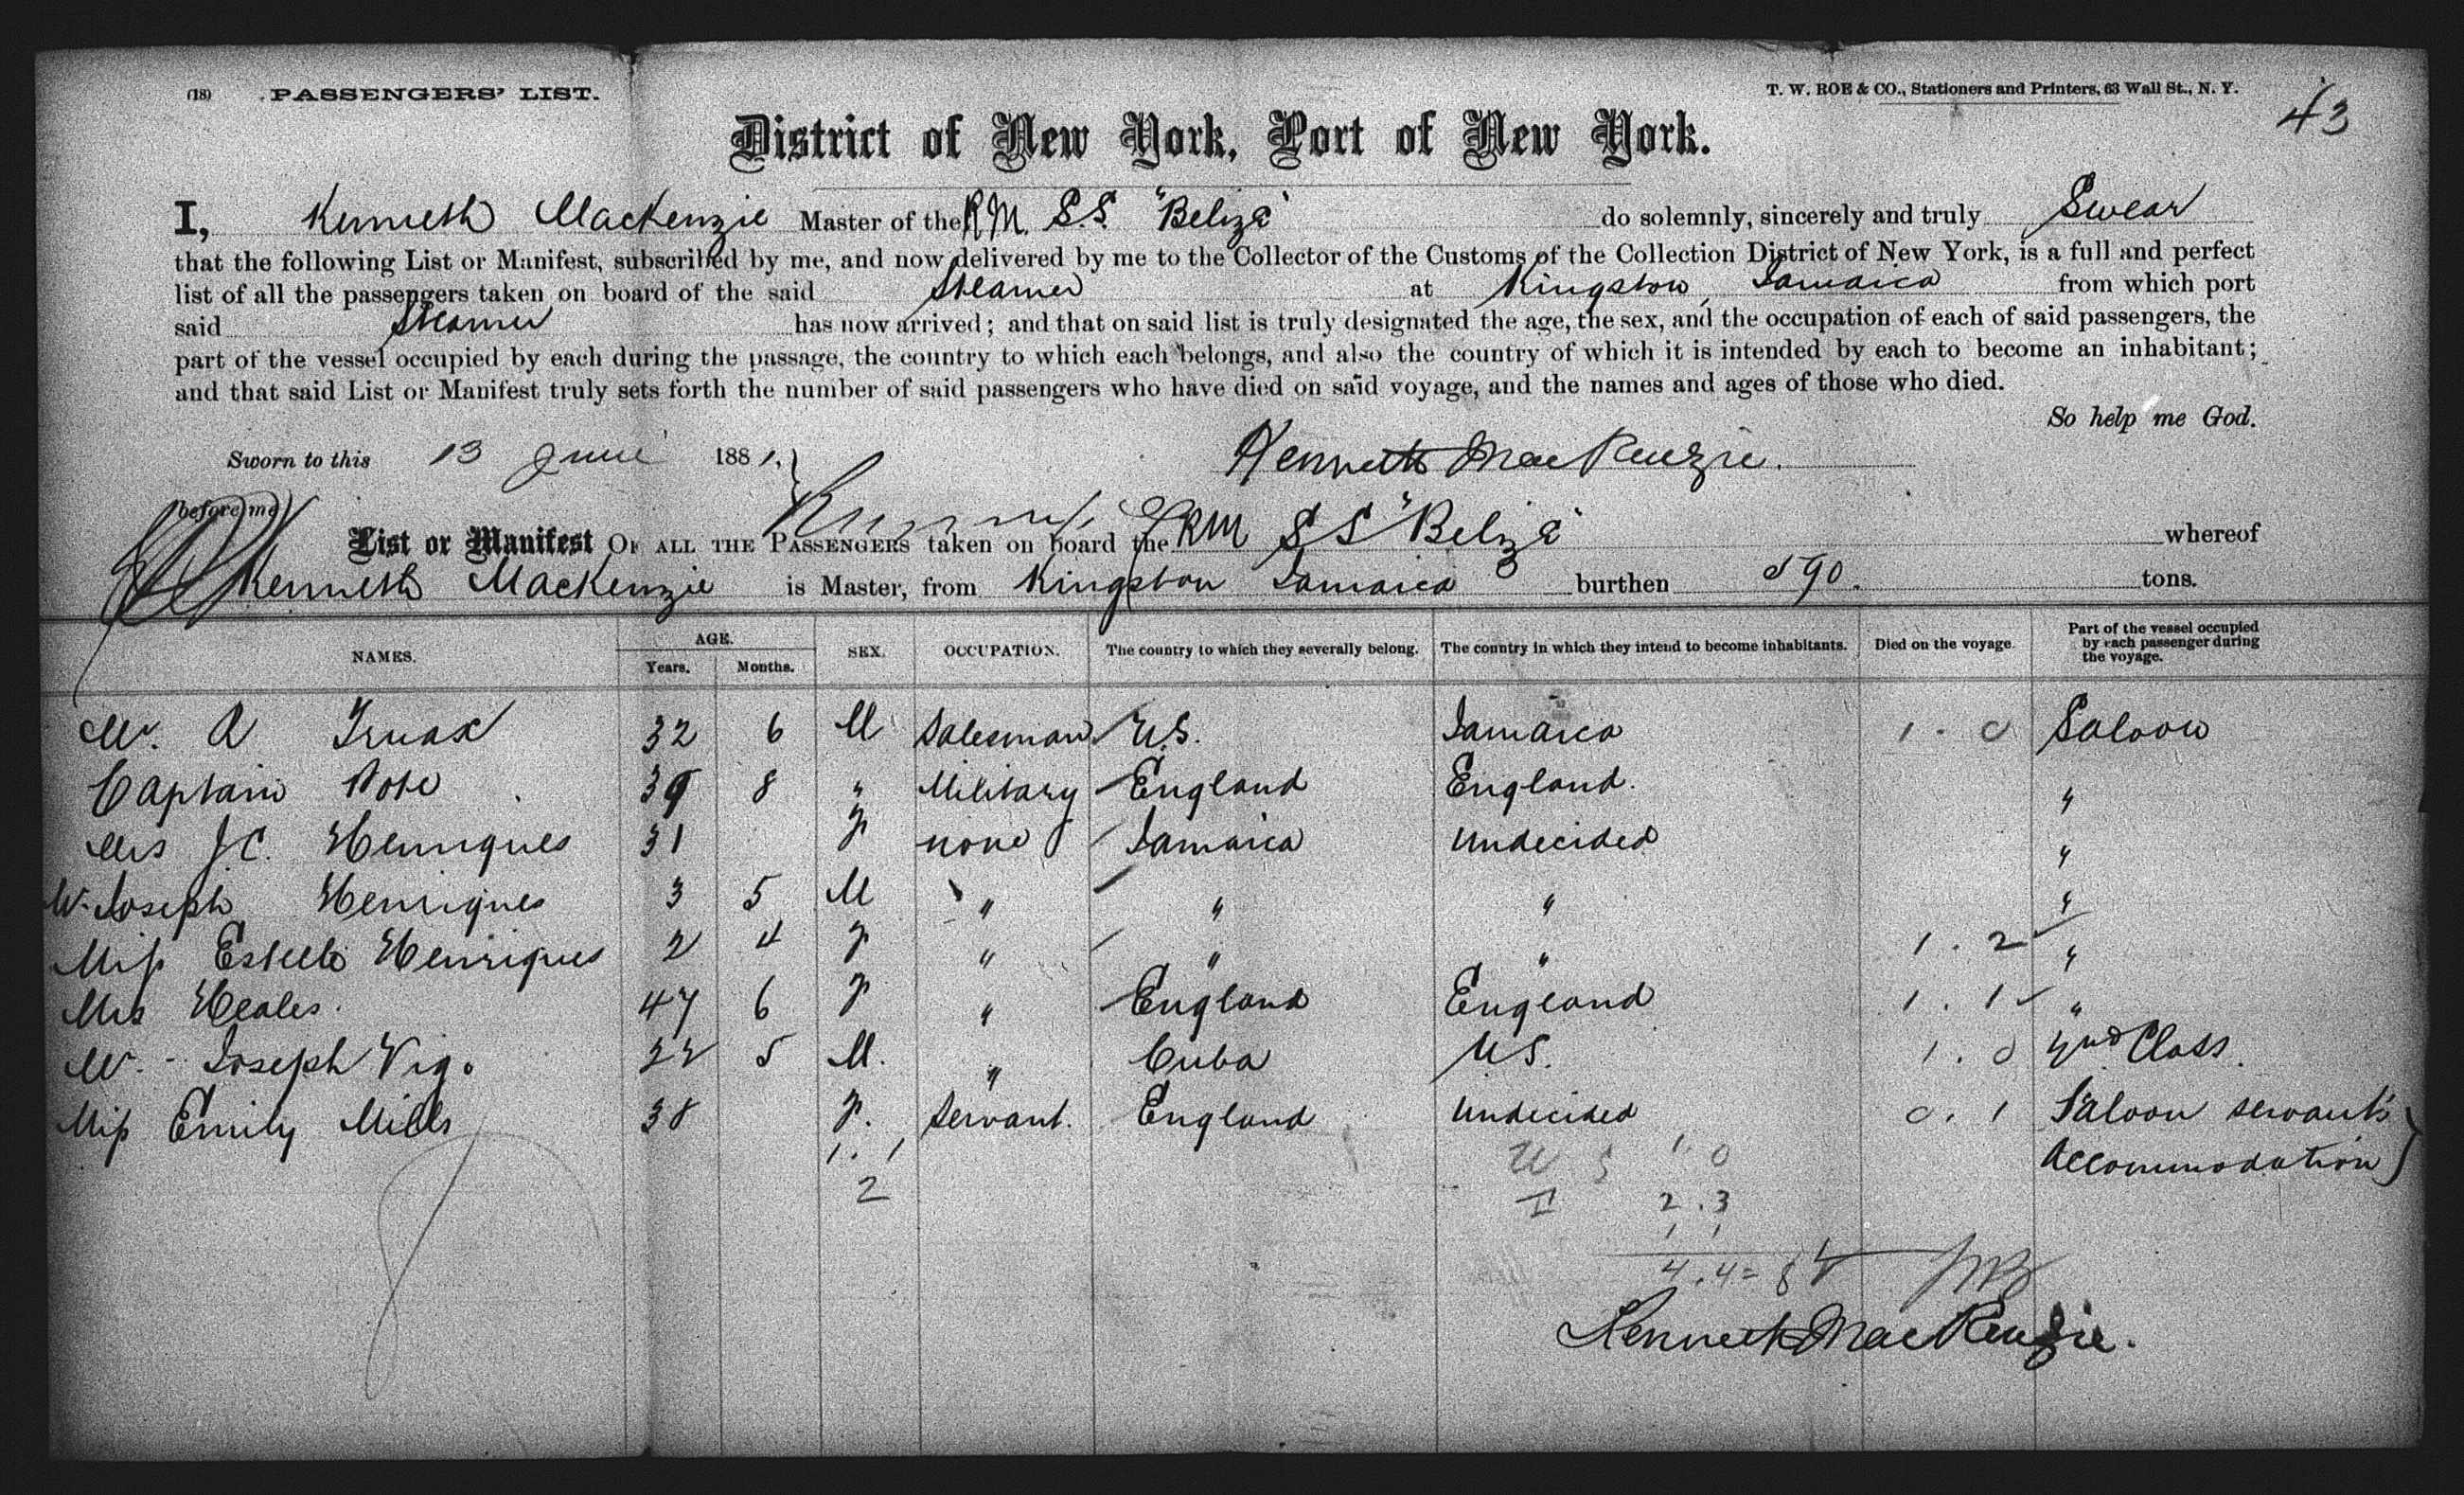 (18) PASSENGERS' LIST.
T. W. ROE & CO., Stationers and Printers, 63 Wall St., N. Y.
43
District of New York, Port of New York.
I, Kenneth Mackenzie Master of the R.M. S.S. "Belize" do solemnly, sincerely and truly Swear
that the following List or Manifest, subscribed by me, and now delivered by me to the Collector of the Customs of the Collection District of New York, is a full and perfect
list of all the passengers taken on board of the said Steamer at Kingston, Jamaica from which port
said Steamer has now arrived; and that on said list is truly designated the age, the sex, and the occupation of each of said passengers, the
part of the vessel occupied by each during the passage, the country to which each belongs, and also the country of which it is intended by each to become an inhabitant;
and that said List or Manifest truly sets forth the number of said passengers who have died on said voyage, and the names and ages of those who died.
So help me God.
Sworn to this 13 June 1881. Kenneth MacKenzie.
before me
List or Manifest OF ALL THE PASSENGERS taken on board the RM SS "Belize" whereof
Kenneth Mackenzie is Master, from Kingston Jamaica burthen 590. tons.
NAMES. AGE. Years. Months. SEX. OCCUPATION. The country to which they severally belong. The country in which they intend to become inhabitants. Died on the voyage. Part of the vessel occupied by each passenger during the voyage.
Mr. A Truax 32 6 M Salesman U.S. Jamaica 1 . 0 Saloon
Captain 39 8 " Military England England. "
Mrs J.C. Henriques 31 F none Jamaica Undecided "
Mr. Joseph Henriques 3 5 M " " " "
Miss Estelle Henriques 2 4 F " " " 1 . 2 "
Mrs Heales. 47 6 F " England England 1 . 1 "
Mr. - Joseph Vigo 22 5 M. " Cuba U.S. 1 . 0 2nd Class.
Miss Emily Mills 38 F. Servant. England Undecided 0 . 1 Saloon servants
1 . 1 U S 1 . 0 Accommodation
2 2 . 3
1 1
4 . 4 = 8
Kenneth MacKenzie.